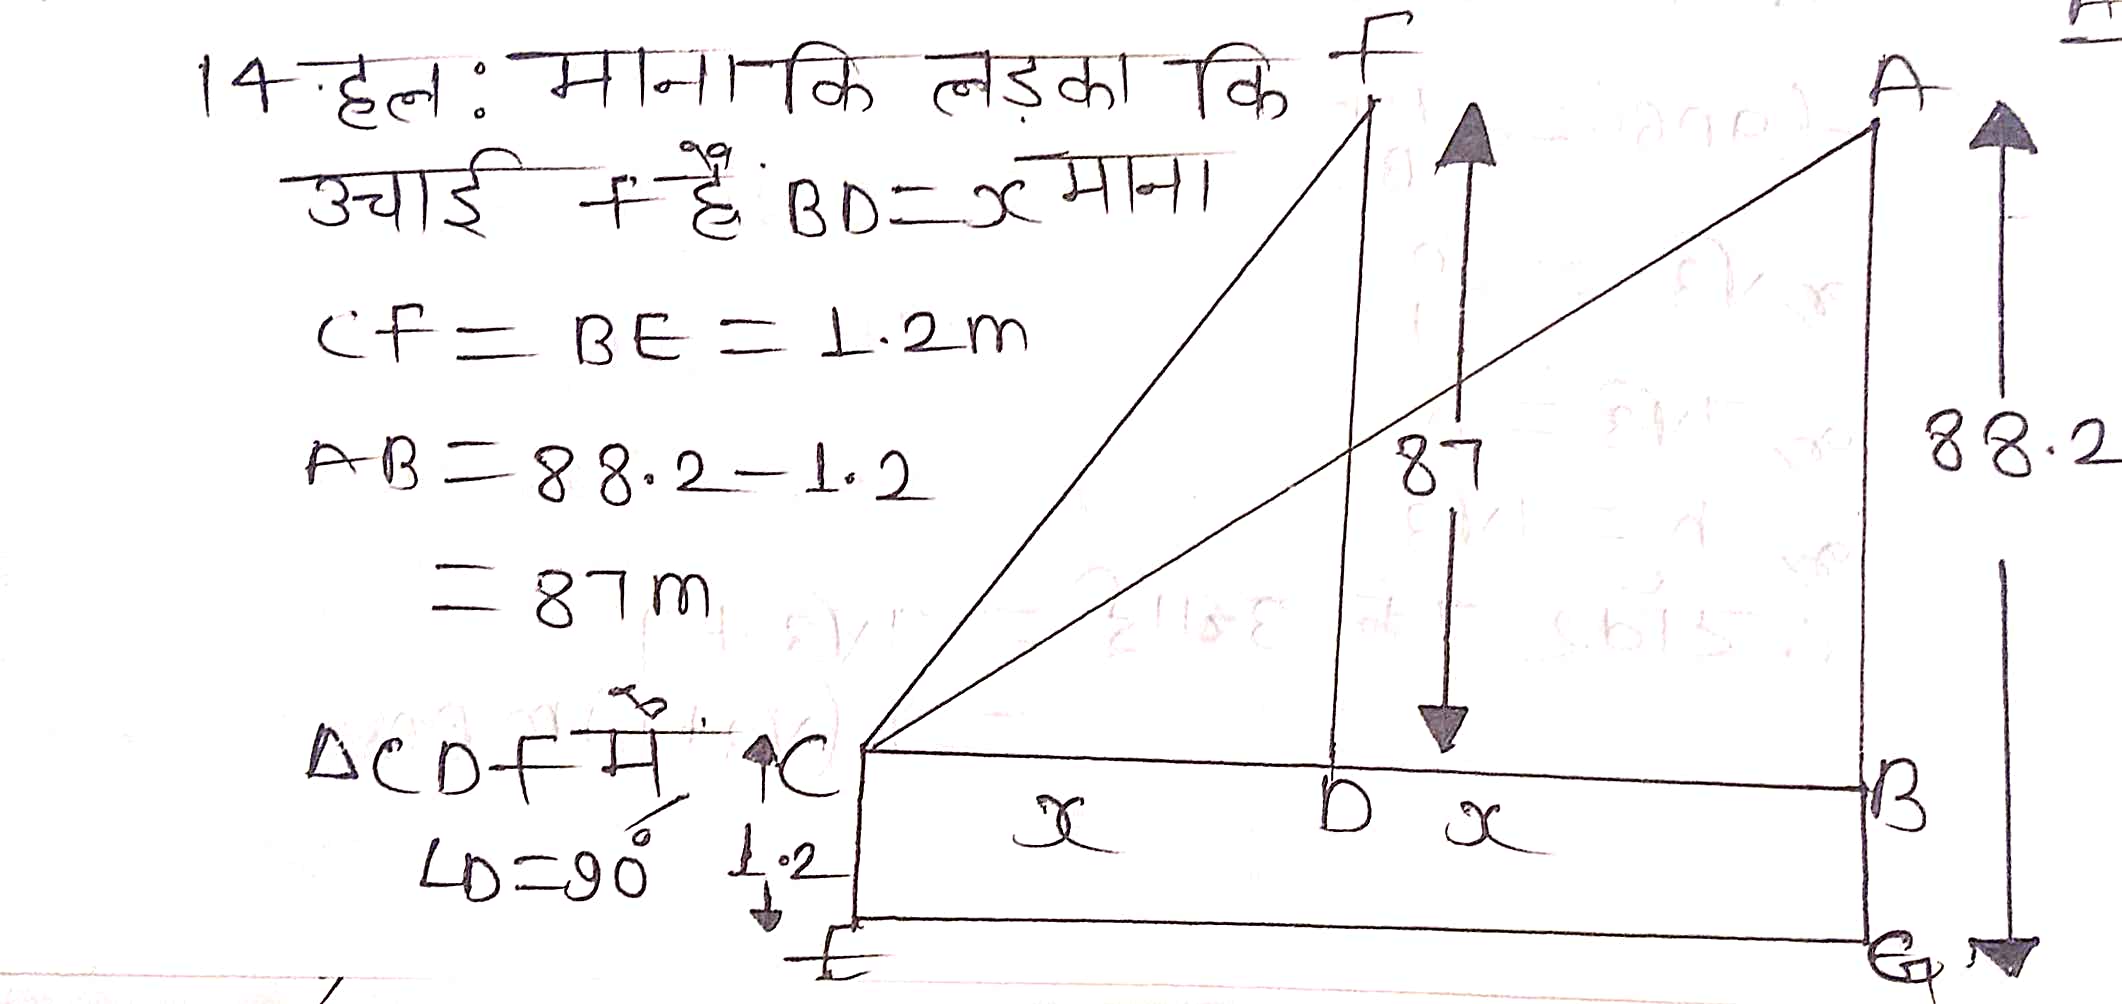 14. हल: माना कि लड़का कि
उचाई F हैं BD = x माना
CF = BE = 1.2m
AB = 88.2 - 1.2
= 87m
ΔCDF में
∠D = 90°
F
A
87
88.2
C
D
B
x
x
1.2
E
G